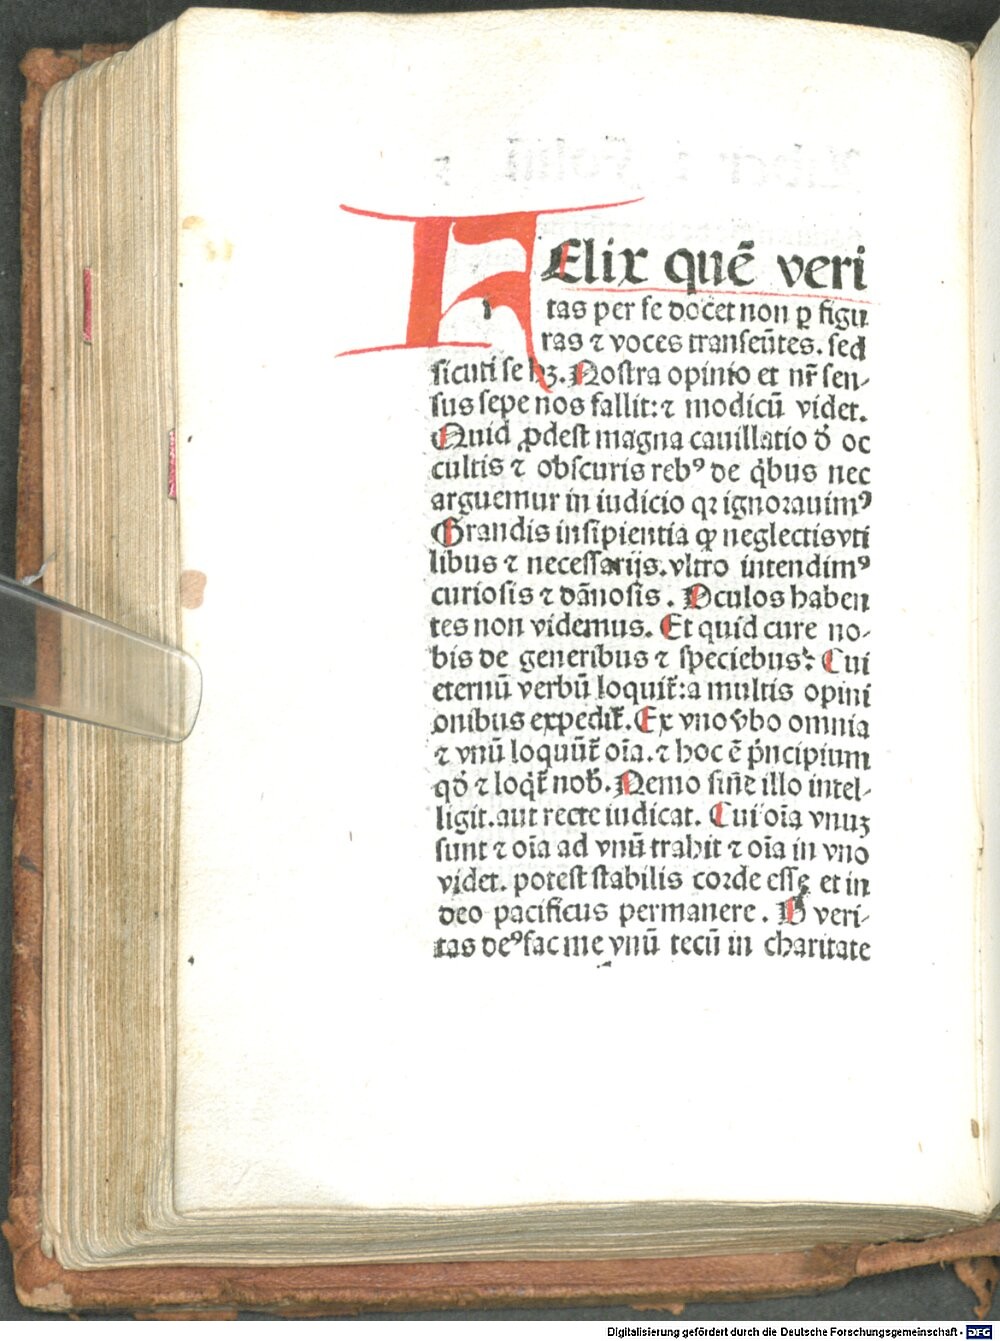 FElix quē veri
tas per se docet non ꝑ figu
ras ⁊ voces transeūtes. sed
sicuti se hꝫ. Nostra opinio et nr̄ sen⸗
sus sepe nos fallit: ⁊ modicū videt.
Quid ꝓdest magna cauillatio d̄ oc
cultis ⁊ obscuris rebꝰ de q̇bus nec
arguemur in iudicio qꝛ ignorauimꝰ
Grandis insipientia ꝙ neglectis vti
libus ⁊ necessarijs. vltro intendimꝰ
curiosis ⁊ dānosis. Oculos haben
tes non videmus. Et quid cure no⸗
bis de generibus ⁊ speciebus? Cui
eternū verbū loquit̄: a multis opini
onibus expedit̄. Ex vno v̄bo omnia
⁊ vnū loquūt̄ oīa. ⁊ hoc ē pͥncipium
qd̄ ⁊ loqͥt̄ nob̄. Nemo sine illo intel⸗
ligit. aut recte iudicat. Cui oīa vnuꝫ
sunt ⁊ oīa ad vnū trahit ⁊ oīa in vno
videt. potest stabilis corde esse et in
deo pacificus permanere. O veri⸗
tas deꝰ fac me vnū tecū in charitate
Digitalisierung gefördert durch die Deutsche Forschungsgemeinschaft - DFG